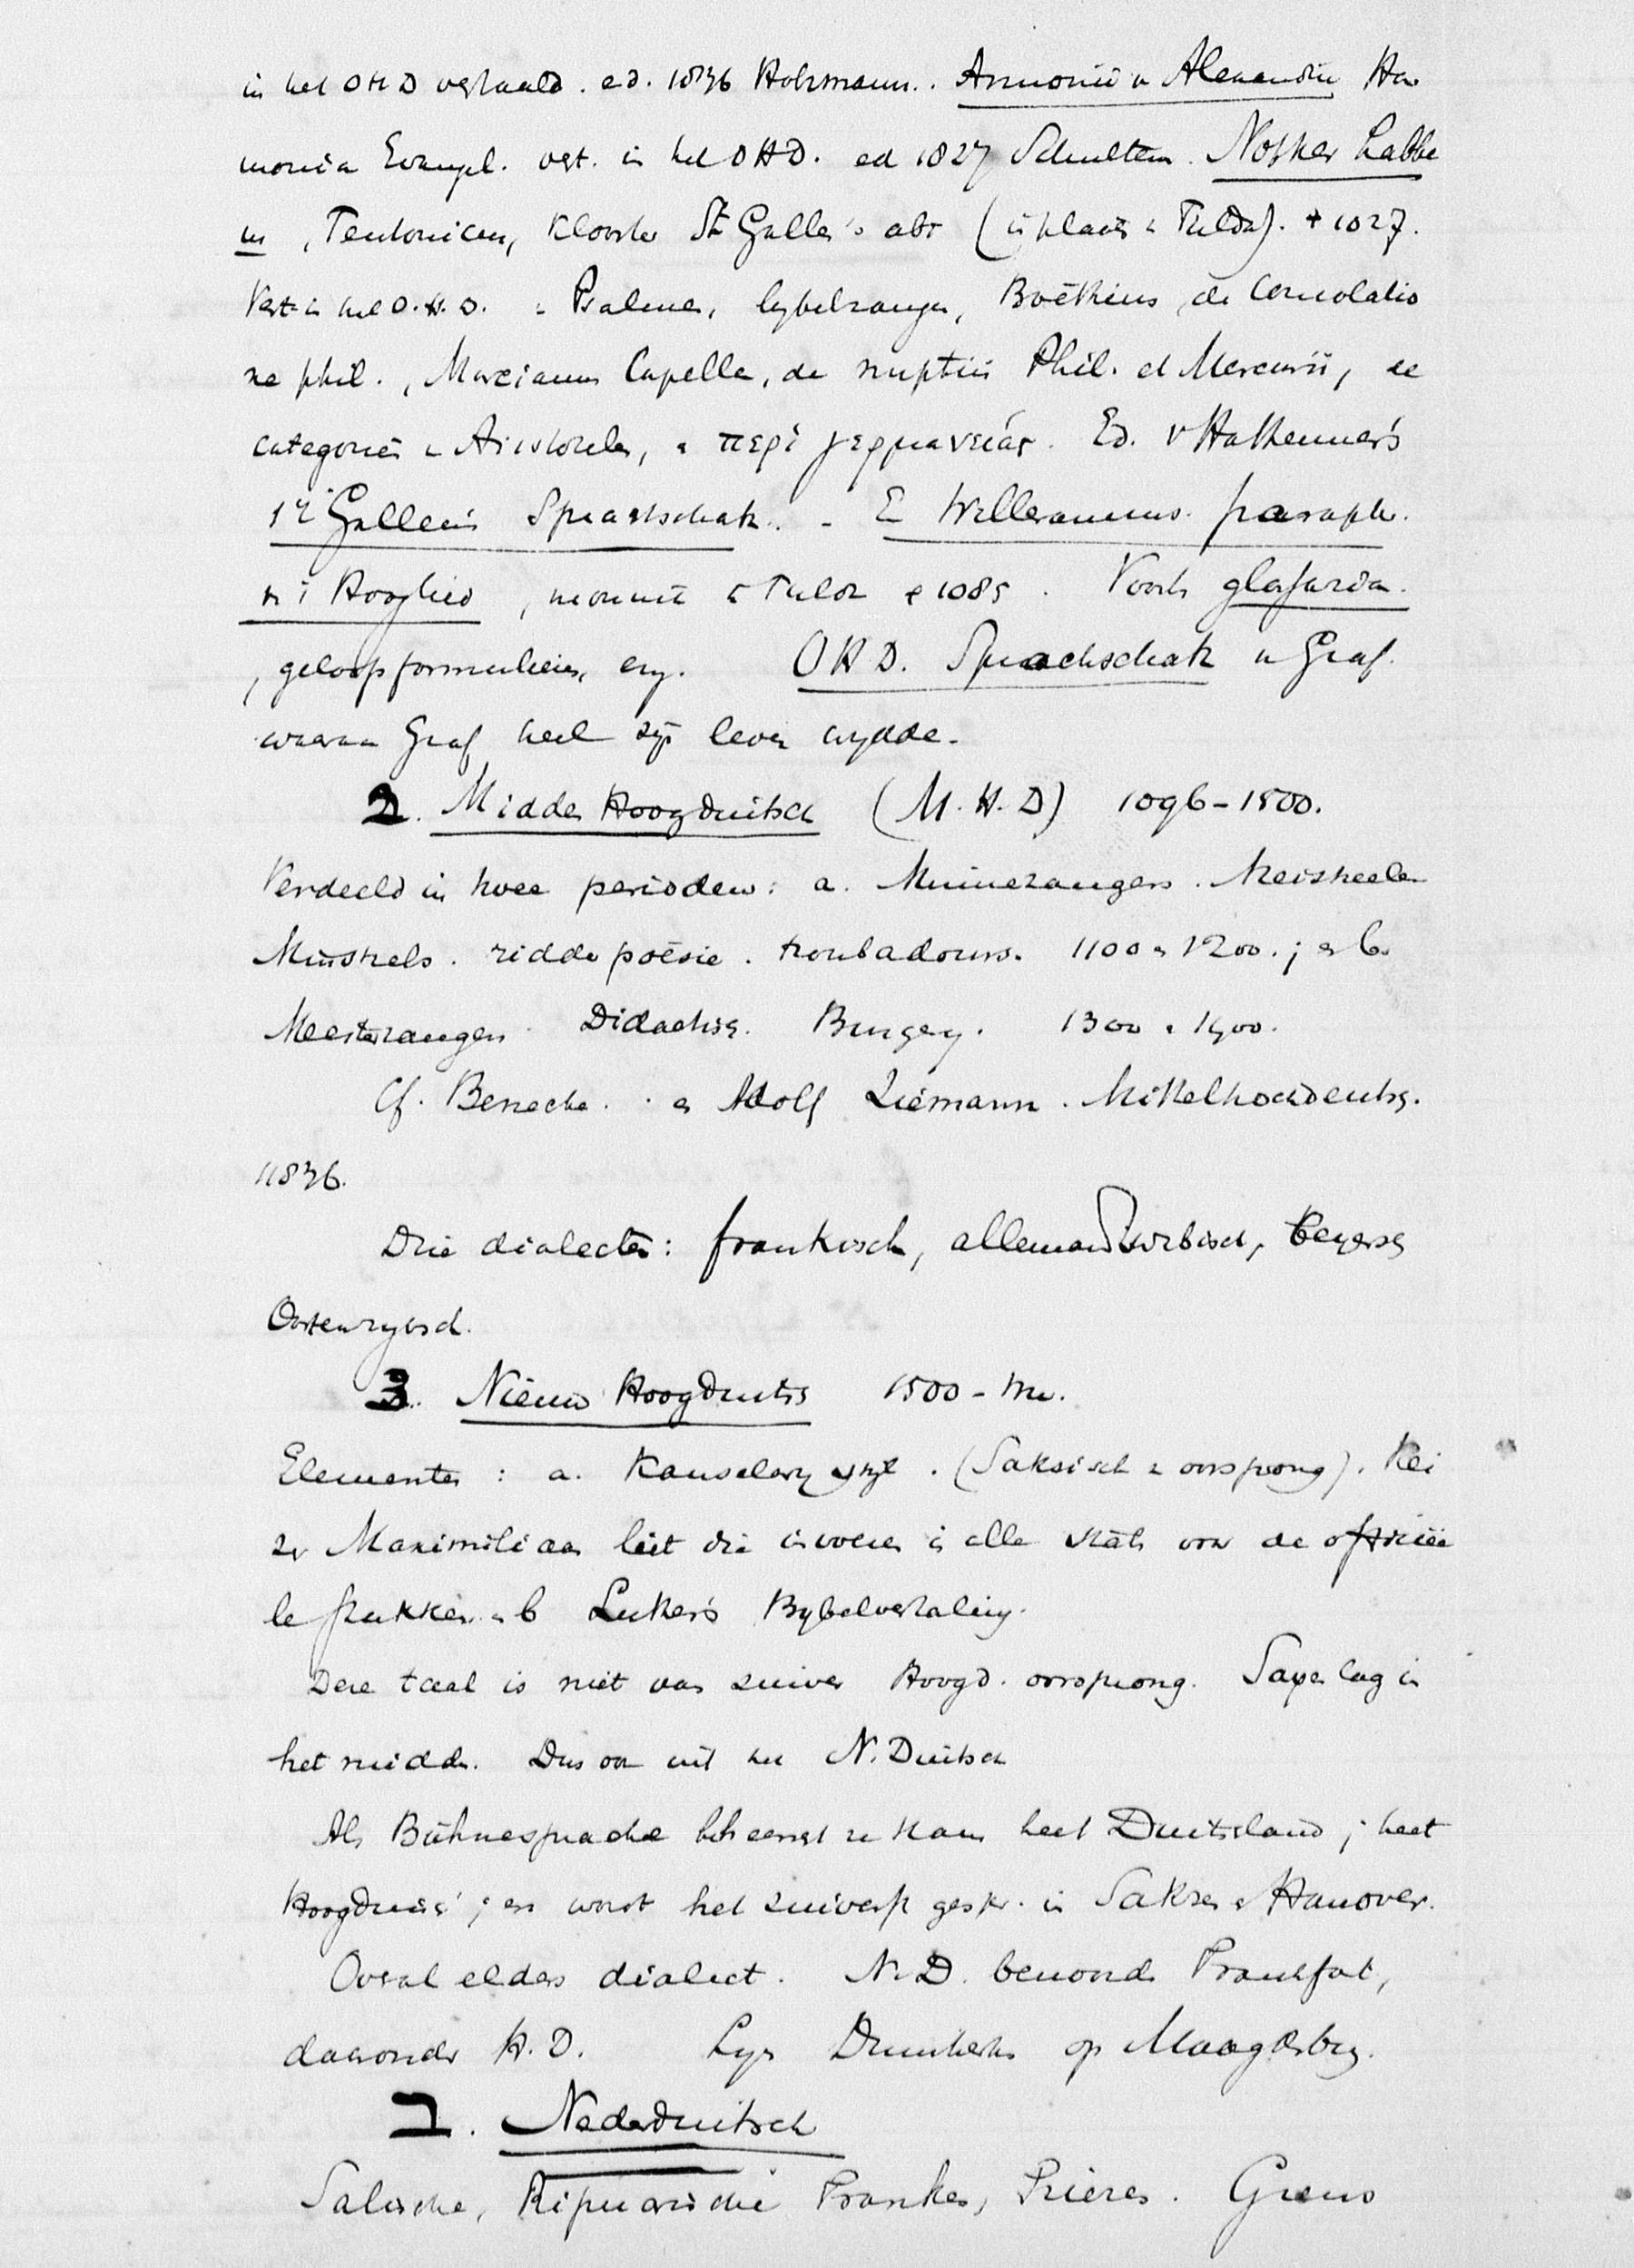 in het OHD vertaald. ed. 1836 Holzmann.. Ammonius v Alexandrie Har
monia Evangel. vert. in het OHD. ed 1827 Schmeller. Notker Labbe
us, Teutonicus, klooster St Galle's abt (in plaats v Fulda). † 1027.
Vert in het O.H.D. v Psalmen, lijkzangen, Boëthius de Consolatio
ne phil., Marcianus Capella, de nuptiis Phil. et Mercurii, de
categorien v Aristoteles, v περί γερμανείας. Ed. v Hattemer's
St Gallens Sprachschatz. - E Willeramus paraphr.
v 't Hooglied, monnik te Fulda † 1085. Voorts glossaria.
, geloofsformulieren, enz. OHD. Sprachschatz v Graf.
waaraan Graf heel zijn leven wydde.
2. Midden Hoogduitsch (M.H.D) 1096-1500.
Verdeeld in twee perioden: a. Minnezangers.
Minstrels. ridderpoësie. troubadours. 1100 en 1200.; en b.
Meesterzangers. Didactisch. Burgerij. 1300 en 1400.
Cf. Benecke. en Adolf Ziemann. Mittelhochdeutsch.
1836.
Drie dialecten: frankisch, allemandswebisch, beyersch
Oostenryksch.
3. Nieuw Hoogduitsch 1500 - nu.
Elementen: a. Kanselary styl. (Saksisch v oorsprong). Kei
zer Maximiliaan liet die invoeren in alle staten voor de officiëe
le stukken. en b Luther's Bybelvertaling.
Deze taal is niet van zuiver Hoogd. oorsprong. Saxen lag in
het midden. Dus ook uit het N. Duitsch
Als Bühnesprache beheerscht ze thans heel Duitschland; heet
Hoogduitsch; en wordt het zuiverst gespr. in Saksen en Hanover.
Overal elders dialect. N.D. benoorden Frankfort,
daaronder H.D. Lijn Duinkerken op Maagdeburg.
I. Nederduitsch
Salische, Ripuarische Franken, Friezen. Grens